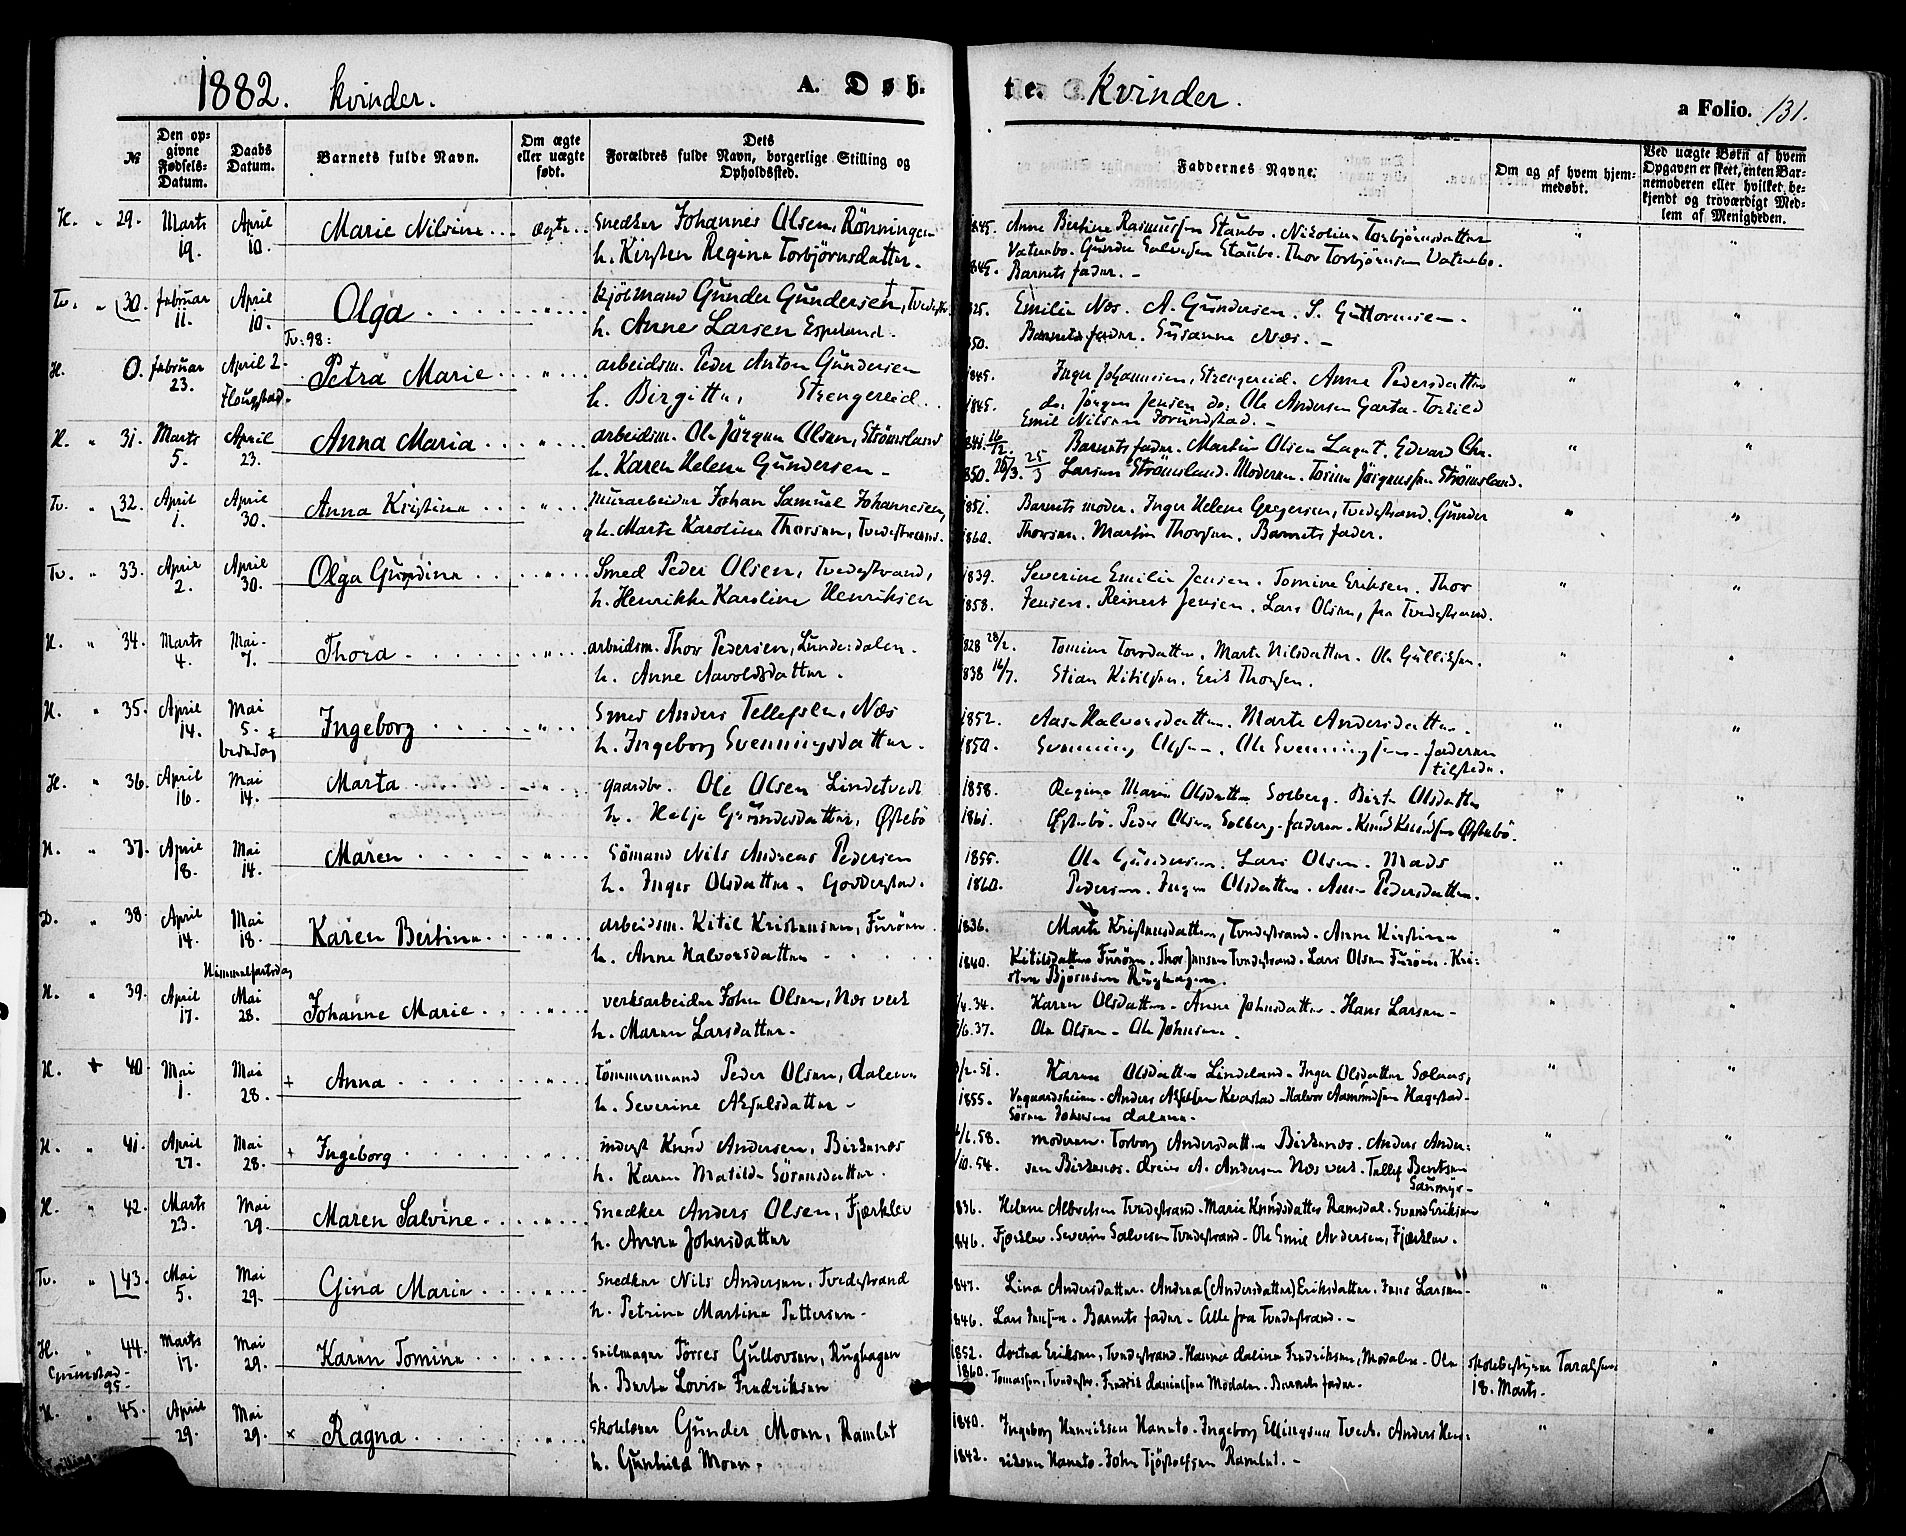 1882. Kvinder.
A. Døb-
te. Kvinder.
a Folio. 131.
№
Den op-
givne
Fødsels-
Datum.
Daabs
Datum.
Barnets fulde Navn.
Om ægte
eller uægte
født.
Dets
Forældres fulde Navn, borgerlige Stilling og
Opholdssted.
Faddernes Navne.
Om og af hvem hjem-
medøbt.
Ved uægte Børn af hvem
Opgaven er skeet, enten Bar-
nemoderen eller hvilket be-
kjendt og troværdigt Med-
lem af Menigheden.
H. " 29. Marts 19. April 10. Marie Nilsine ægte Snedker Johannes Olsen, Rönningen
h. Kirsten Regine Torbjörnsdatter.
1845. Anne Bertine Rasmussen Staubo. Nikoline Torbjörnsdatter
Vatnebo. Gunder Salvesen Staubo. Thor Torbjörnsen Vatnebo.
1845. Barnets fader.
Tv. " 30. Februar 11. April 10. Olga " Kjölmand Gunder Gundersen †, Tvedestr.
h. Anne Larsen Espeland.
825. Emilie Næs. A. Gundersen. S. Guttormsen.
850. Barnets fader. Susanne Næs.
Tv: 98:
H. 0. Februar 23. April 2. Flougstad. Petra Marie " arbeidsm. Peder Anton Gundersen
h. Birgitte, Strengereid.
1845. Inger Johannesen, Strengereid. Anne Pedersdatter
1845. do. Jörgen Jensen do. Ole Andersen Garta. Torkild
Emil Nilsen
H. " 31. Marts 5. April 23. Anna Maria " arbeidsm. Ole Jörgen Olsen, Strömsland
h. Karen Helene Gundersen
841. 16/2. Barnets fader. Martin Olsen Laget. Edvard Chr.
850. 26/3. 25/3 Larsen Strömsland. Moderen. Torine Jörgensen Strömsland.
Tv. " 32. April 1. April 30. Anna Kristine " murarbeider Johan Samuel Johannesen,
h. Marte Karoline Thorsen, Tvedestrand.
1851. Barnets moder. Inger Helene Gregersen, Tvedestrand. Gunder
1860. Thorsen. Martin Thorsen. Barnets fader.
Tv. " 33. April 2. April 30. Olga Gundine " Smed Peder Olsen, Tvedestrand,
h. Henrikke Karoline Henriksen
1839. Severine Emilie Jensen. Tomine Eriksen. Thor
1858. Jensen. Reinert Jensen. Lars Olsen, fra Tvedestrand.
H. " 34. Marts 4. Mai 7. Thora " arbeidsm. Thor Pedersen, Lunderdalen.
h. Anne Aavoldsdatter.
828 28/2. Tomine Torsdatter. Marte Nilsdatter. Ole Gulliksen.
838 16/7. Stian Kitilsen. Erik Thorsen.
H. " 35. April 14. Mai 5. bededag Ingeborg " Smed Anders Tellefsen, Næs
h. Ingeborg Svenningsdatter.
1852. Aase Halvorsdatter. Marte Andersdatter.
1850. Svenning Olsen. Ole Svenningsen. faderen
tilstede.
H. " 36. April 16. Mai 14. Marta " gaardbr. Ole Olsen Lindetvedt
h. Helje Gundersdatter, Østebö
1858. Regine Marie Olsdatter Solberg. Birte Olsdatter
1861. Østebö. Peder Olsen Solberg. faderen. Knud Knudsen Østebö.
H. " 37. April 18. Mai 14. Maren " Sömand Nils Andreas Pedersen
h. Inger Olsdatter. Goderstad.
1855. Ole Gundersen. Lars Olsen. Mads
1860. Pedersen. Inger Olsdatter. Anne Pedersdatter.
D. " 38. April 14. Mai 18. Himmelfartsdag Karen Bertine " arbeidsm. Kitil Kristensen, Furöen.
h. Anne Halvorsdatter
1836. Marte Kristensdatter, Tvedestrand. Anne Kirstine
1840. Kitilsdatter Furöen. Thor Jensen Tvedestrand. Lars Olsen Furöen. Kri-
sten Björnsen Rughagen.
H. " 39. April 17. Mai 28. Johanne Marie " verksarbeider John Olsen, Næs verk
h. Maren Larsdatter.
/4.34. Karen Olsdatter. Anne Johnsdatter. Hans Larsen
/6.37. Ole Olsen. Ole Johnsen.
H. + 40. Mai 1. Mai 28. + Anna " tömmermand Peder Olsen, dalene
h. Severine Akselsdatter
/2.51. Karen Olsdatter Lindeland. Inger Olsdatter Solaas,
1855. Vegaardsheien. Anders Akselsen Kvastad. Halvor Aamundsen Hagestad.
Sören Johnsen dalene.
H. " 41. April 27. Mai 28. + Ingeborg " inderst Knud Andersen, Birkenæs
h. Karen Matilde Sörensdatter.
/6.58. moderen. Torborg Andersdatter Birkenæs. Anders Ander-
/10.54. sen Birkenæs. A. Andersen Næs verk. Tellef Bentsen
Saumyr
H. " 42. Marts 23. Mai 29. Maren Salvine " Snedker Anders Olsen, Fjærklev
h. Anne Johnsdatter
836. Helene Albretsen Tvedestrand. Marie Knudsdatter Ramsdal. Svend Eriksen
846. Fjærklev. Severin Salvesen Tvedestrand. Ole Emil Andersen, Fjærklev.
Tv. " 43. Mai 5. Mai 29. Gina Marie " Snedker Nils Andersen, Tvedestrand
h. Petrine Martine Pettersen
847. Lina Andersdatter. Andrea (Andersdatter) Eriksdatter. Jens Larsen
846. Lars Jensen. Barnets fader. Alle fra Tvedestrand.
H. " 44. Marts 17. Mai 29. Karen Tomine " seilmager Gullovsen, Rughagen
h. Berte Lovise Fredriksen
Grimstad
95
1852. Dortea Eriksen, Tvedestrand. Hanna dalina Fredriksen, Modalen. Ole
1860. Tomassen, Tvedestr. Fredrik danielsen Modalen. Barnets fader.
skolebestyrer Taraldsen
18. Marts.
H. " 45. April 29. Mai 29. × Ragna " Skolelærer Gunder Moen, Ramlet
h. Gunhild Moen.
1840. Ingeborg Henriksen Hanto. Ingeborg Ellingsen Tveit. Anders Hen-
1842. riksen Hanto. John Tjöstolfsen Ramlet.